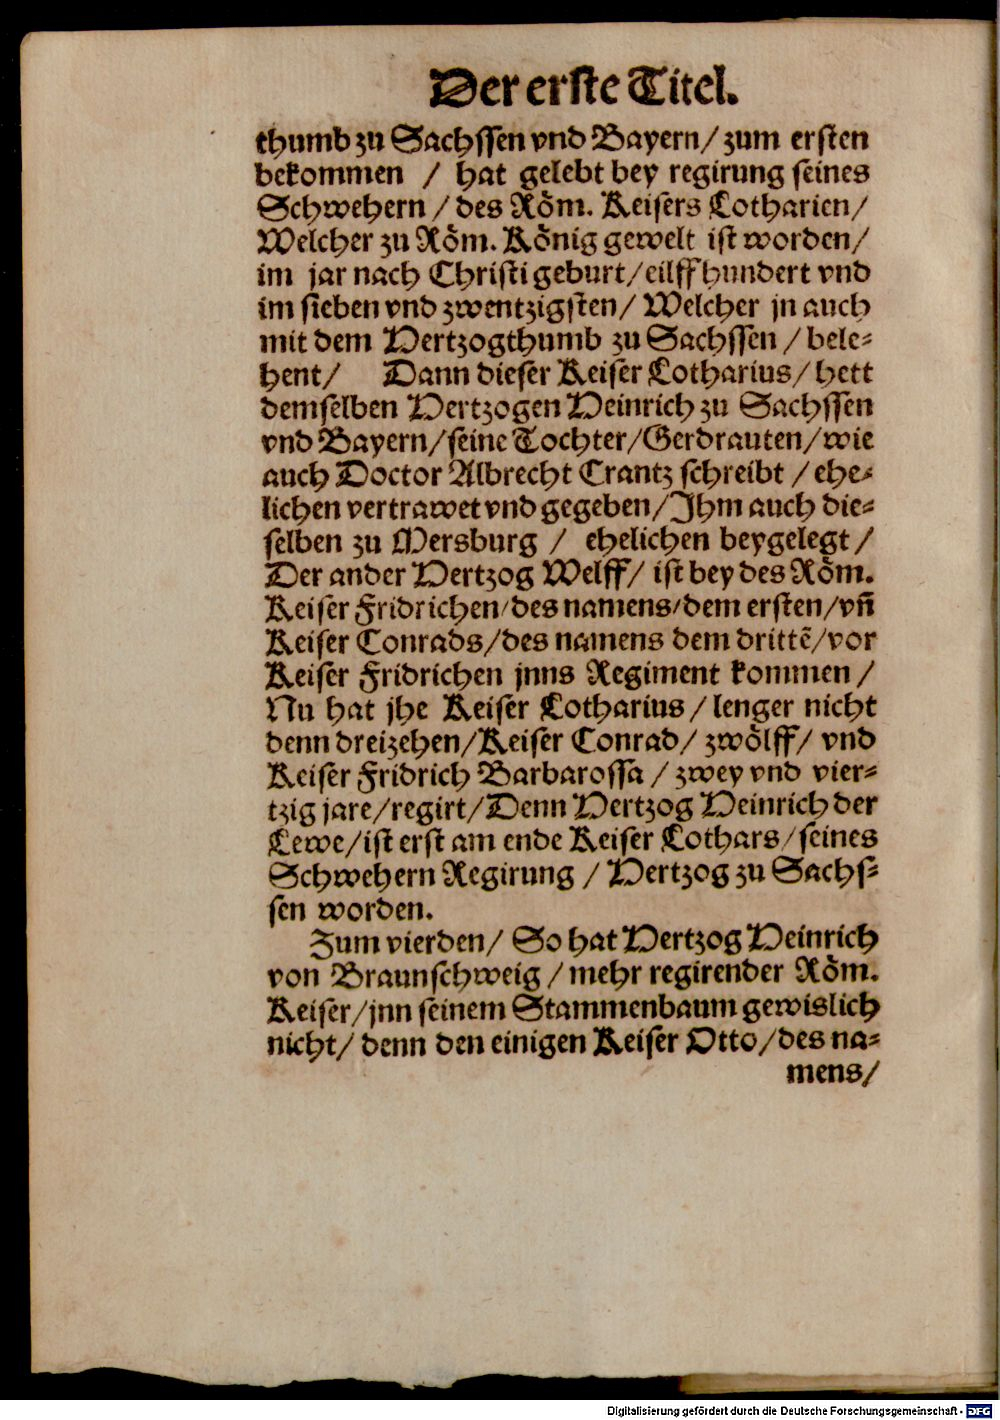 Der erste Titel.
thumb zu Sachssen vnd Bayern/ zum ersten
bekommen / hat gelebt bey regirung seines
Schwehern / des Röm. Keisers Lotharien/
Welcher zu Röm. König gewelt ist worden/
im jar nach Christi geburt/ eilffhundert vnd
im sieben vnd zwentzigsten/ Welcher jn auch
mit dem Hertzogthumb zu Sachssen / bele-
hent/ Dann dieser Keiser Lotharius/ hett
demselben Hertzogen Heinrich zu Sachssen
vnd Bayern/ seine Tochter/ Gerdrauten/ wie
auch Doctor Albrecht Crantz schreibt / ehe-
lichen vertrawet vnd gegeben/ Jhm auch die-
selben zu Mersburg / ehelichen beygelegt /
Der ander Hertzog Welff/ ist bey des Röm.
Keiser Fridrichen/ des namens/ dem ersten/ vñ
Keiser Conrads/ des namens dem drittẽ/ vor
Keiser Fridrichen jnns Regiment kommen /
Nu hat jhe Keiser Lotharius/ lenger nicht
denn dreizehen/ Keiser Conrad/ zwölff/ vnd
Keiser Fridrich Barbarossa / zwey vnd vier-
tzig jare/ regirt/ Denn Hertzog Heinrich der
Lewe/ ist erst am ende Keiser Lothars/ seines
Schwehern Regirung / Hertzog zu Sachs-
sen worden.
Zum vierden/ So hat Hertzog Heinrich
von Braunschweig / mehr regirender Röm.
Keiser/ jnn seinem Stammenbaum gewislich
nicht/ denn den einigen Keiser Otto/ des na-
mens/
Digitalisierung gefördert durch die Deutsche Forschungsgemeinschaft - DFG